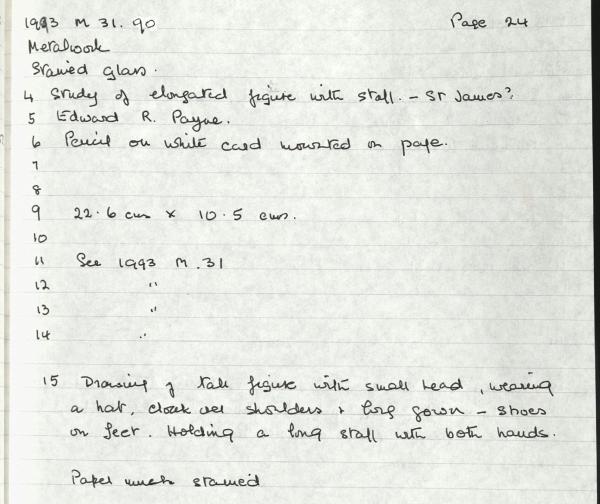 1993 M 31. 90 Page 24
Metalwork
Stained glass.
4 Study of elongated figure with staff. - St James?
5 Edward R. Payne.
6 Pencil on white card mounted on page.
7
8
9 22.6 cms x 10.5 cms.
10
11 See 1993 M.31
12 "
13 "
14 "
15 Drawing of tall figure with small head, wearing
a hat, cloak over shoulders & long gown - shoes
on feet. Holding a long staff with both hands.
Paper much stained